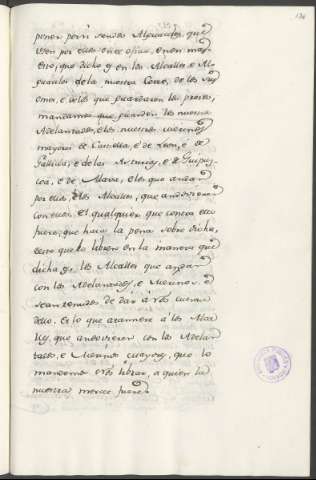 134
poner por si sendos Alguaciles, que
usen por ellos en el oficio, en la ma
que dicho es en los Alcalles e Al
guaciles de la nuestra Corte, de los
e a los que guardaren los presos,
mandamos que guarden los nuestros
Adelantados, e los nuestros merinos
mayores de Castiella, e de Leon, e de
Gallicia, e de las Asturias, e de Guipuz
coa, e de Alava, e los que andan
por ellos, e los Alcalles, que andodieren
con ellos. Et qualquier que contra esto
ficiere, que haya la pena sobre dicha,
esto que lo libren en la manera que
dicha es los Alcalles que andan
con los Adelantados, e Merinos, e
sean tenudos de dar a nos cuenta
dello. Et lo que tanniere a los Alca
lles, que andodieren con los Adelan
tados, e Merinos mayores, que lo
mandemos nos librar, a quien la
nuestra merced fuere